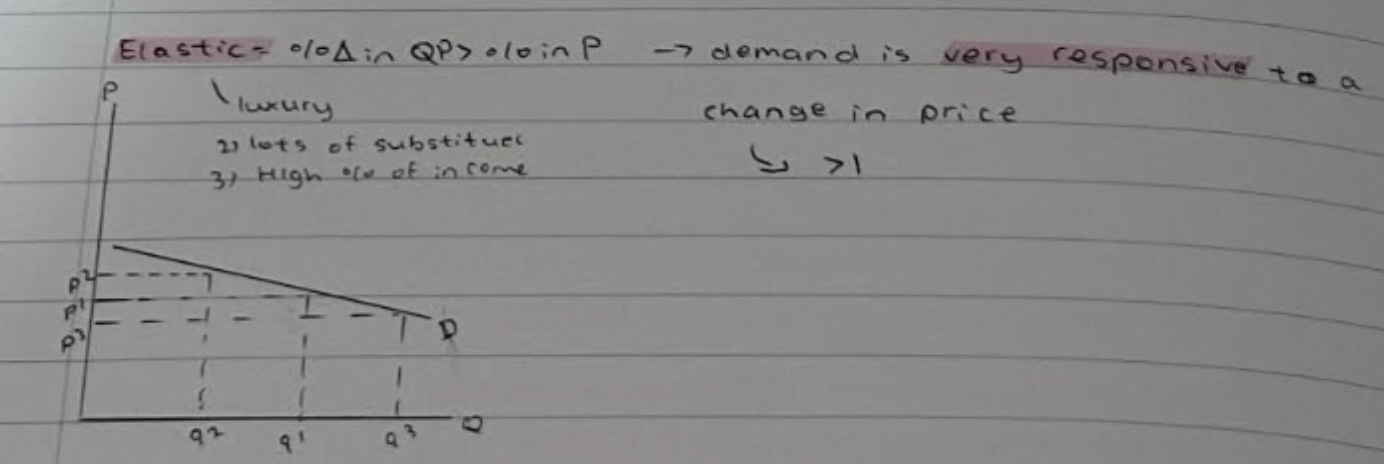 Elastic = %Δ in QP > % in P → demand is very responsive to a
change in price
↳ >1
\ luxury
2) lots of substitues
3) High % of income
P
P2
P1
P3
D
q2 q1 q3 Q